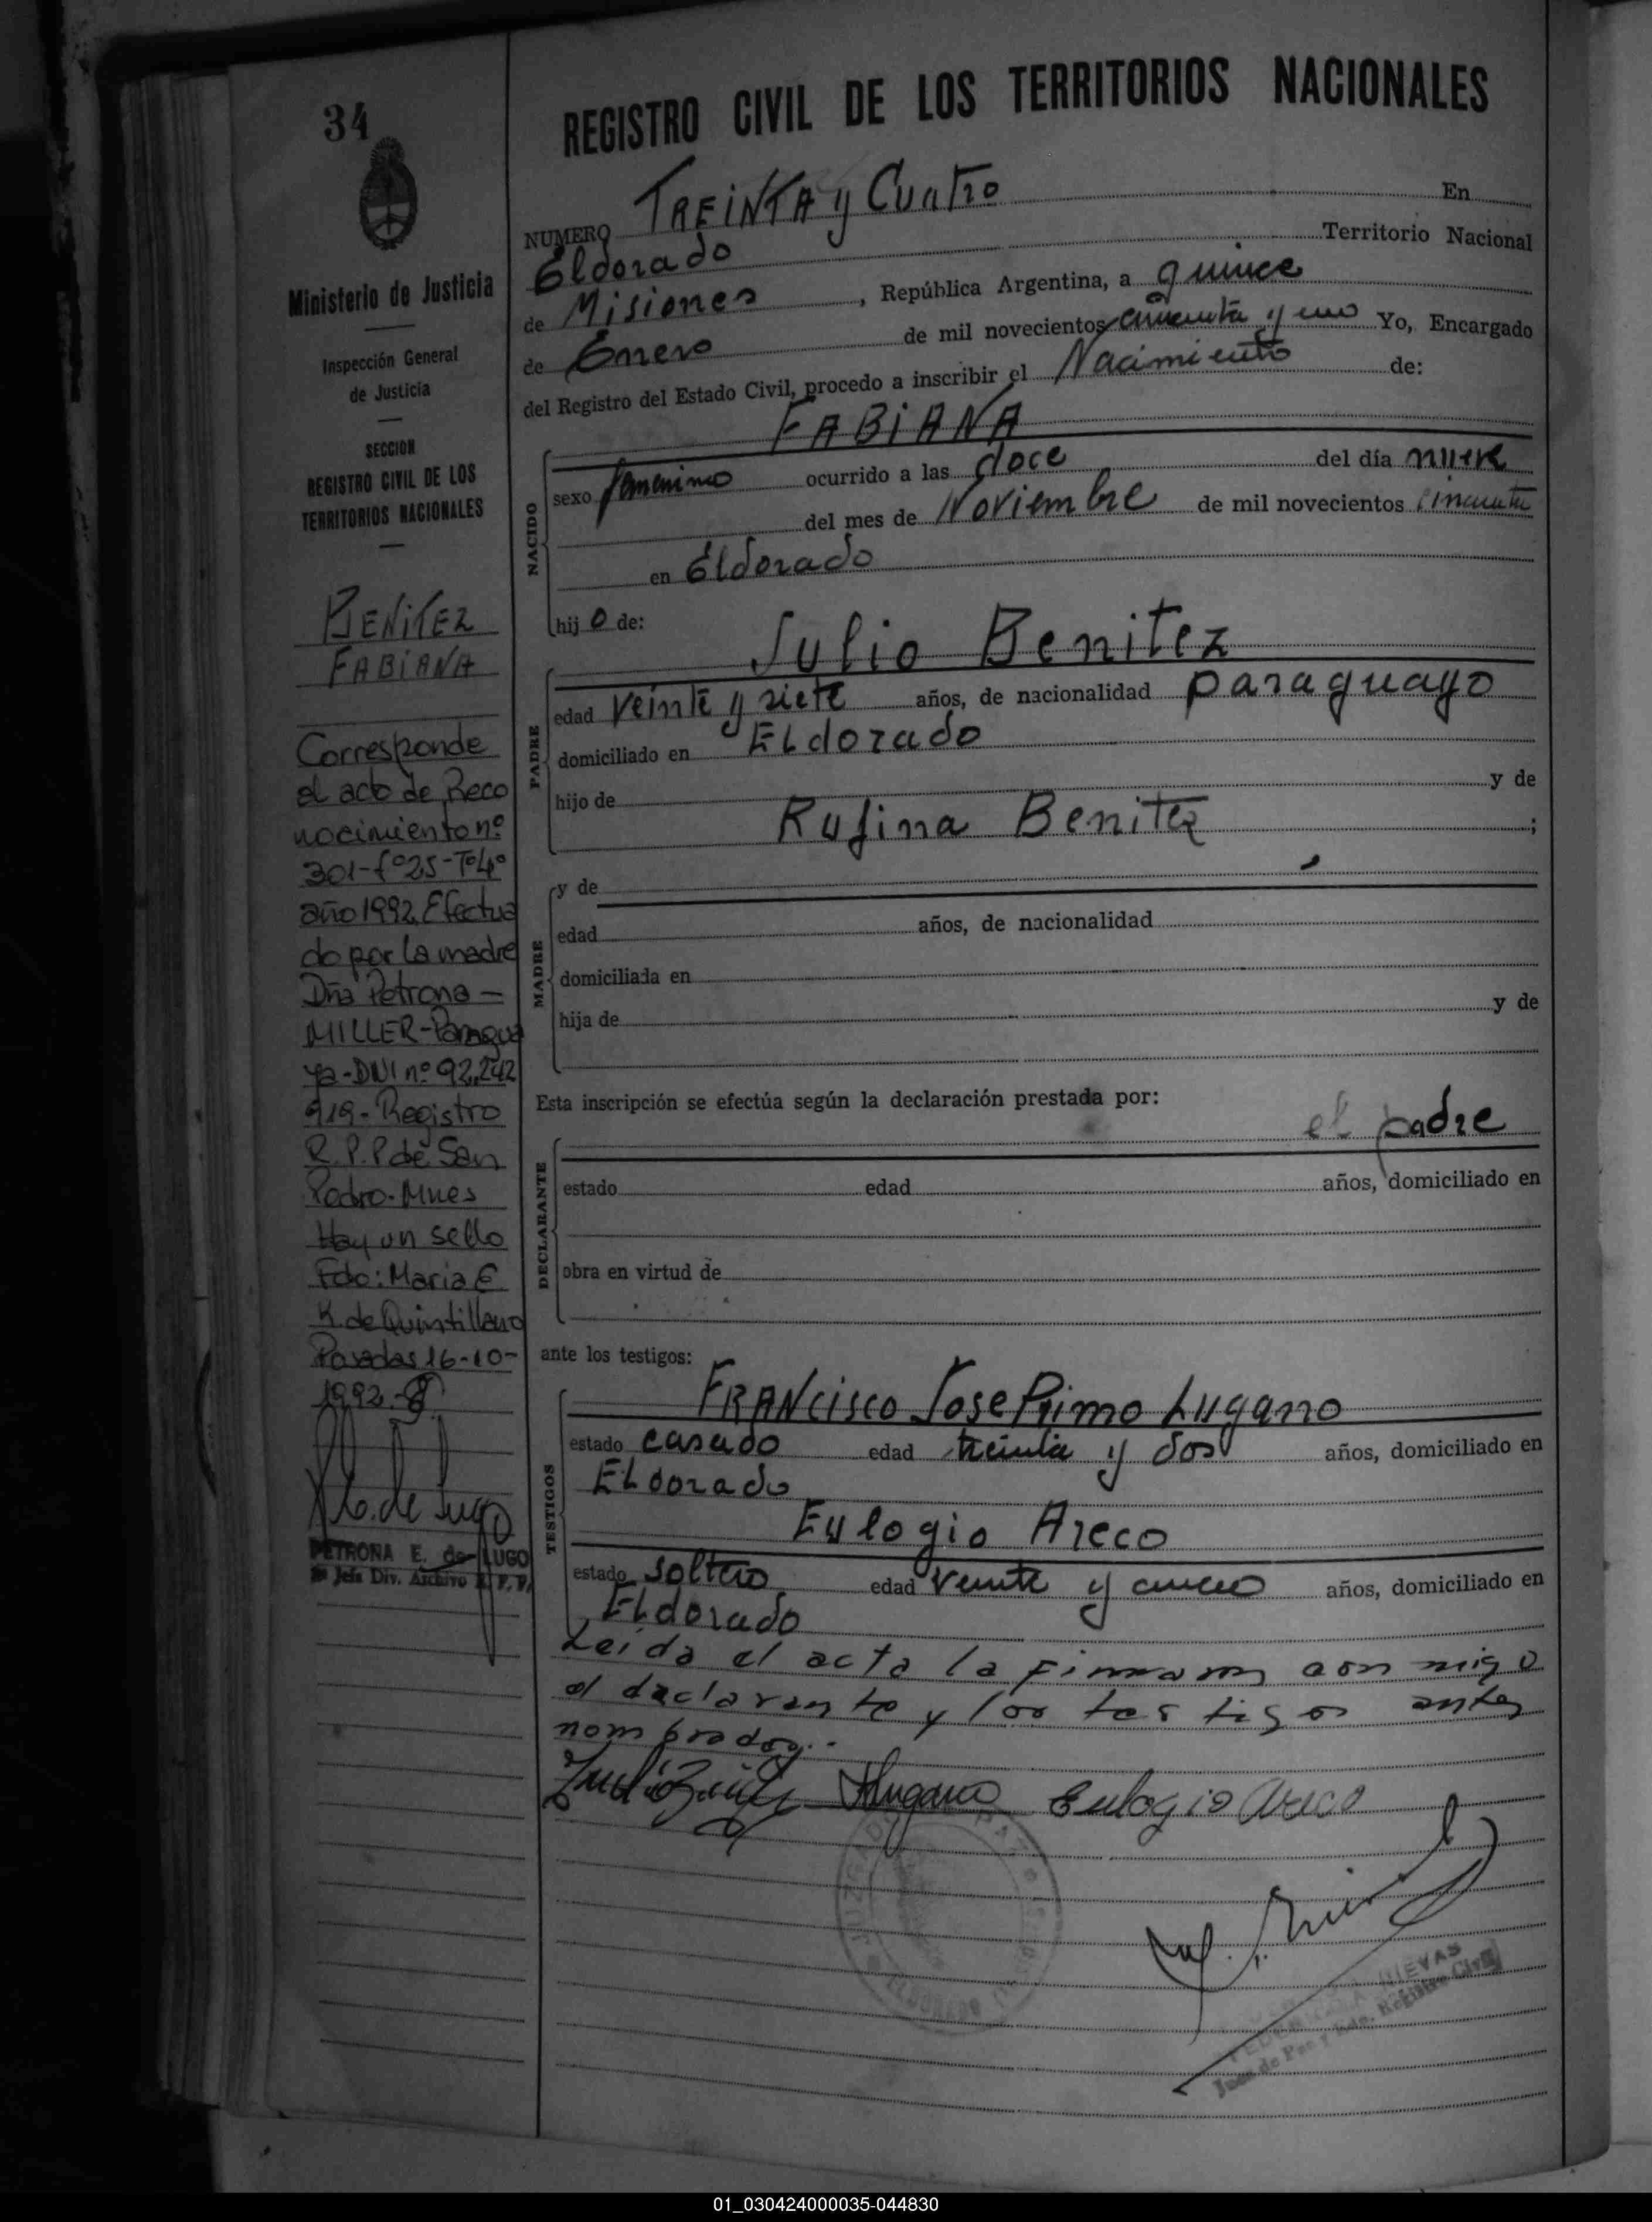 34
REGISTRO CIVIL DE LOS TERRITORIOS NACIONALES
NUMERO TREINTA y Cuatro En
Eldorado Territorio Nacional
de Misiones, República Argentina, a quince
de Enero de mil novecientos cincuenta y uno Yo, Encargado
del Registro del Estado Civil, procedo a inscribir el Nacimiento de:
FABIANA
NACIDO
sexo femenino ocurrido a las doce del día nueve
del mes de Noviembre de mil novecientos cincuenta
en Eldorado
hijo de:
Julio Benitez
PADRE
edad veinte y siete años, de nacionalidad paraguayo
domiciliado en ELdorado
hijo de y de
Rufina Benitez ;
MADRE
y de
edad años, de nacionalidad
domiciliada en
hija de y de
Esta inscripción se efectúa según la declaración prestada por:
el padre
DECLARANTE
estado edad años, domiciliado en
obra en virtud de
ante los testigos:
TESTIGOS
FRANCisco Jose Primo Lugano
estado casado edad treinta y dos años, domiciliado en
ELdorado
Eulogio Areco
estado soltero edad veinte y cinco años, domiciliado en
ELdorado
Leida el acta la firman con migo
el declarante y los testigos antes
nombrados.-
Eulogio Areco
Ministerio de Justicia
Inspección General
de Justicia
SECCION
REGISTRO CIVIL DE LOS
TERRITORIOS NACIONALES
BENITEZ
FABIANA
Corresponde
el acto de Reco
nocimiento nº
301-fº25-Tº4º
año 1992. Efectua
do por la madre
Dña Petrona -
MILLER-Paragua
ya-DNI nº 92.242
919- Registro
R.P.P de San
Pedro-Mnes
Hay un sello
Fdo: Maria E
K. de Quintillano
Posadas 16-10-
1992.-
PETRONA E. de LUGO
Jefa Div. Archivo R.P.P.
ELDORADO
Juez de Paz y Enc. Registro Civil
01_030424000035-044830